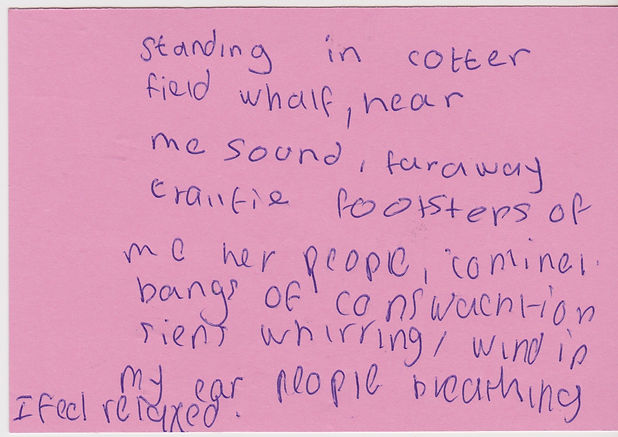 standing in cotter
field whalf, near
me sound, faraway
footsteps of
me her people,
bangs of conswachtion
siens whirring, wind in
my ear people breathing
I feel relaxed.